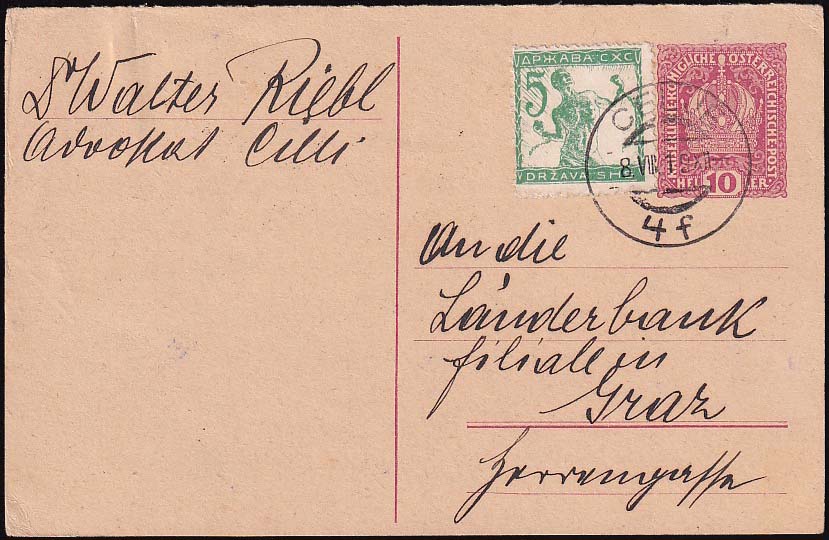 Dr Walter Riebl
Advokat Cilli
АРЖАВА СХС
5
DRŽAVA SHS
KAISERLICHE KÖNIGLICHE ÖSTERREICHISCHE POST
HELLER
10
8. VII
4f
An die
Länderbank
filiale in
Graz
Herrengasse